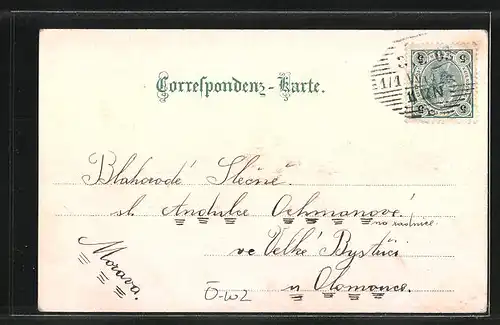 5 5
5 5
1/1
Correspondenz-Karte.
Blahorodé Slečně
sl. Andulce Ochmanové
na radnice
ve Velké Bystřici
u Olomouce.
Morava.
Ö-W2